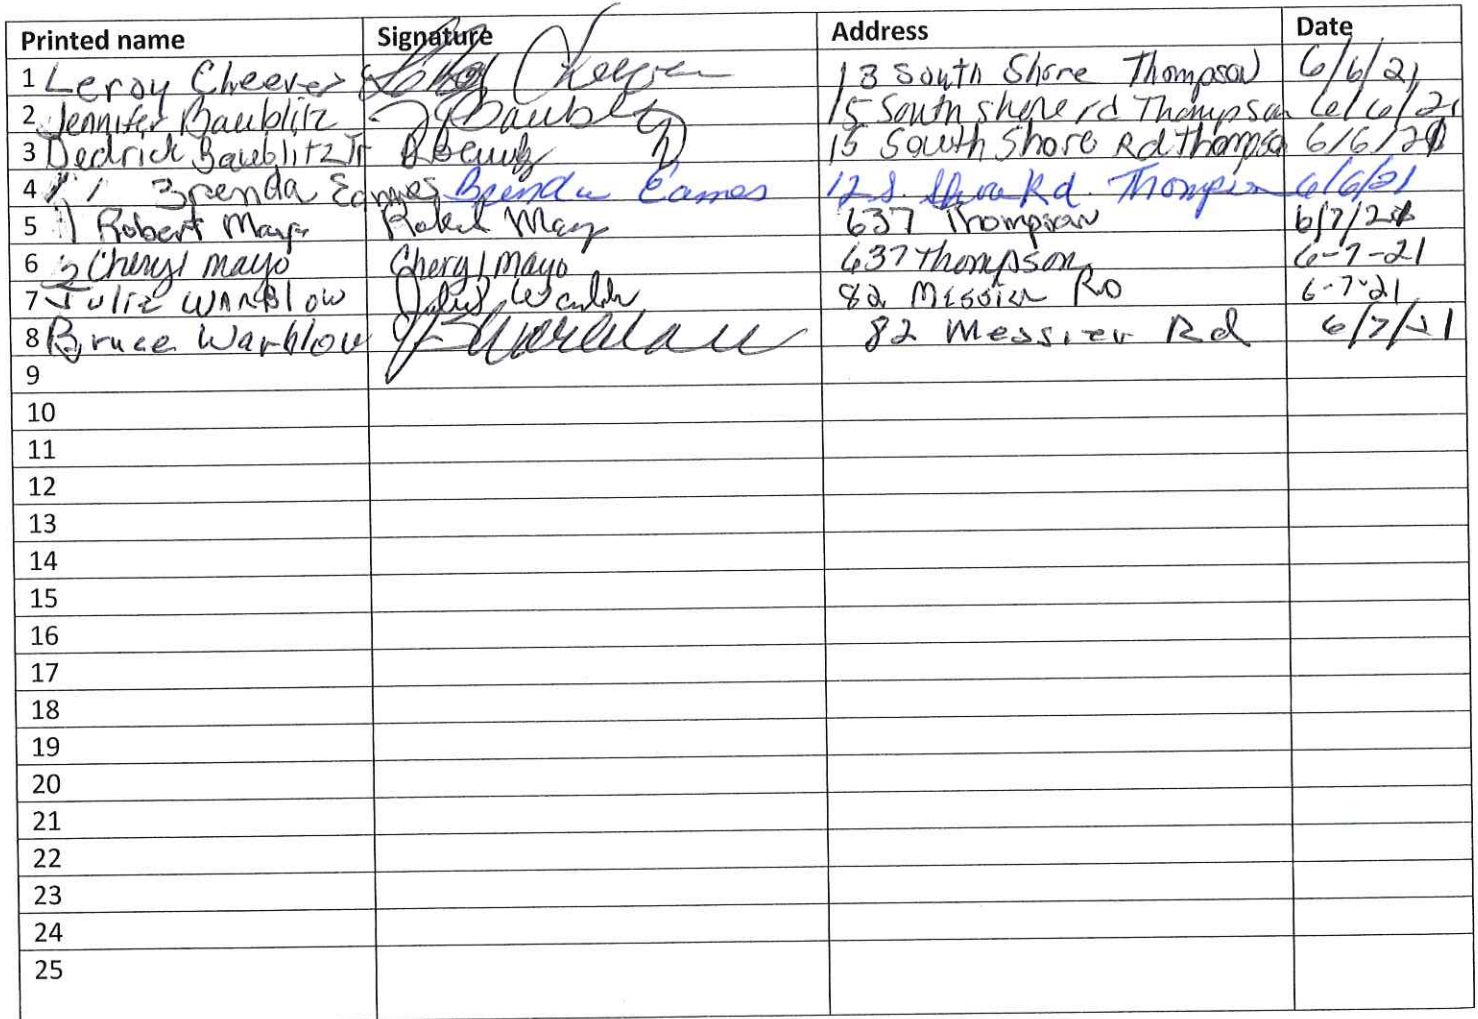 Printed name Signature Address Date
1 Leroy Cheever 13 South Shore Thompson 6/6/21
2 Jennifer Baublitz J Baublitz 15 South shore rd Thompson 6/6/21
3 Dedrick Baublitz Jr 15 South Shore Rd Thompson 6/6/21
4 Brenda Eames Brenda Eames 12 S. Shore Rd. Thompson 6/6/21
5 Robert Mayo Robert Mayo 637 Thompson 6/7/21
6 Cheryl mayo Cheryl mayo 637 Thompson 6-7-21
7 Julie WARBlow 82 Messier RD 6-7-21
8 Bruce Warblow 82 Messier Rd 6/7/21
9
10
11
12
13
14
15
16
17
18
19
20
21
22
23
24
25